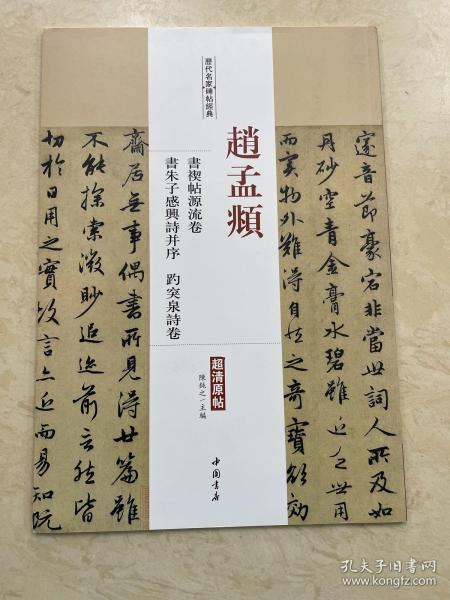 歷代名家碑帖經典
趙孟頫
書禊帖源流卷
書朱子感興詩并序 趵突泉詩卷
超清原帖
陳鈍之/主編
中国書店
邃音節豪宕非當世詞人所及如
丹砂空青金膏水碧雖近乏世用
而實物外難得自然之奇寶欲効
齋居無事偶書所見得廿篇雖
不能探索微眇追迹前言然皆
切於日用之實故言亦近而易知既
孔夫子旧书网
www.kongfz.com